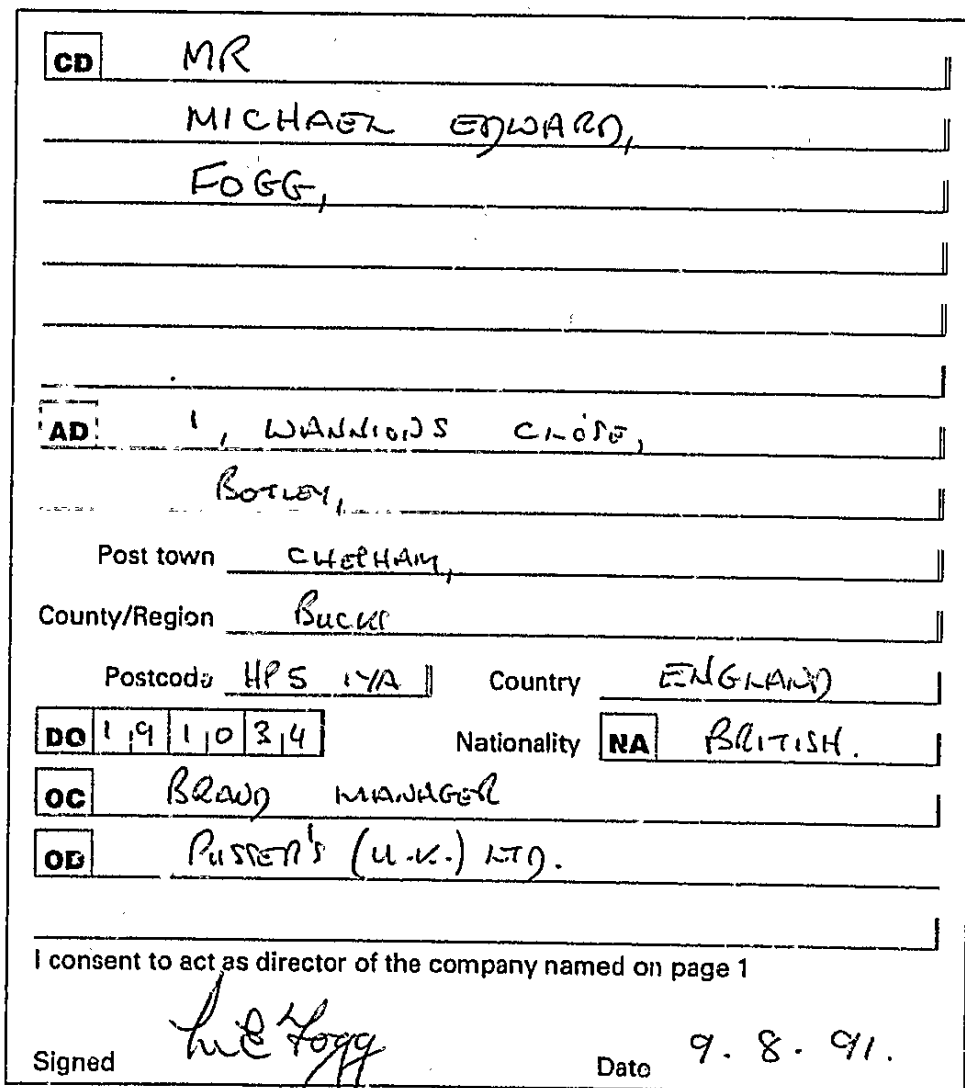 CD MR
MICHAEL EDWARD,
FOGG,
AD 1, WANNIONS CLOSE,
BOTLEY,
Post town CHESHAM,
County/Region BUCKS
Postcode HP5 1YA Country ENGLAND
DO 19 10 34 Nationality NA BRITISH.
OC BRAND MANAGER
OD PUSSER'S (U.K.) LTD.
I consent to act as director of the company named on page 1
Signed M E Fogg Date 9.8.91.